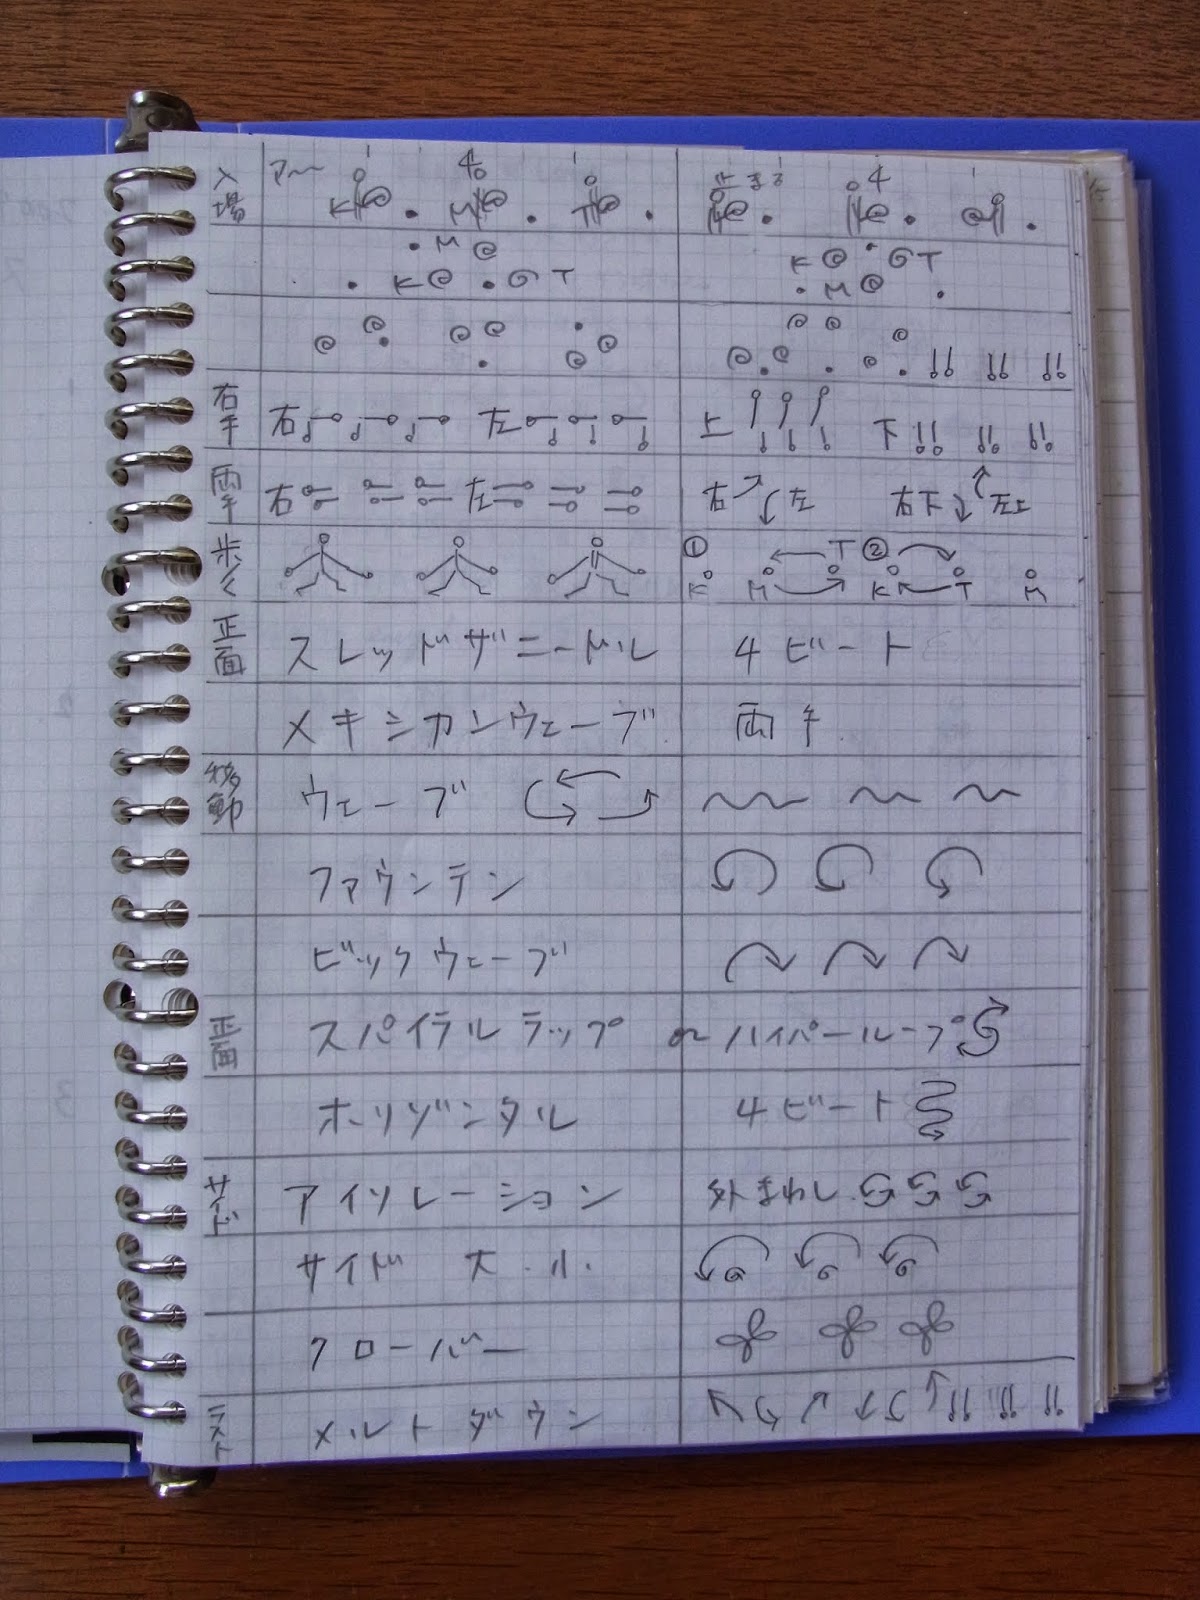 入場 アー 1 4 1 はまる 4 1
K M T
M K T
K T M
右手 右 左 上 下
両手 右 左 右 左 右下 左上
歩く ① K M T ② K T M
正面 スレッドザニードル 4ビート
メキシカンウェーブ 両手
移動 ウェーブ
ファウンテン
ビックウェーブ
正面 スパイラルラップ or ハイパーループ
ホリゾンタル 4ビート
サイド アイソレーション 外まわし
サイド ス.ル.
クローバー
ラスト メルトダウン